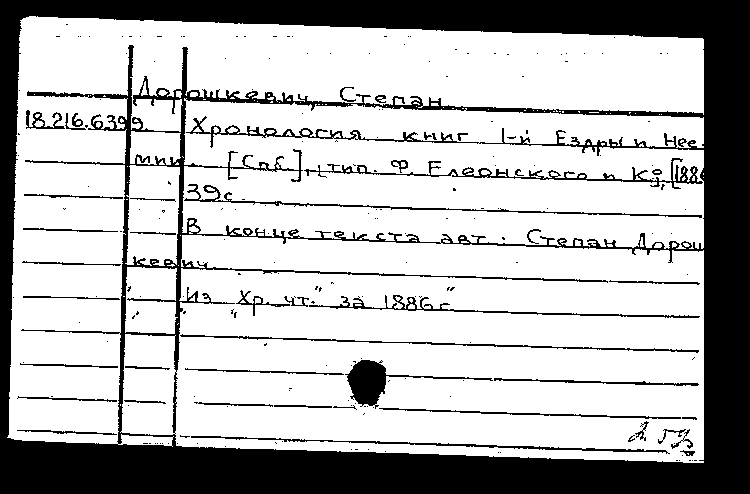 Дорошкевич, Степан
18.216.6399. Хронология книг 1-й Ездры и Нее-
мии. [Спб.], тип. Ф. Елеонского и К°, [1886
39 с.
В конце текста авт.: Степан Дорош
кевич.
Из "Хр. чт." за 1886 г.